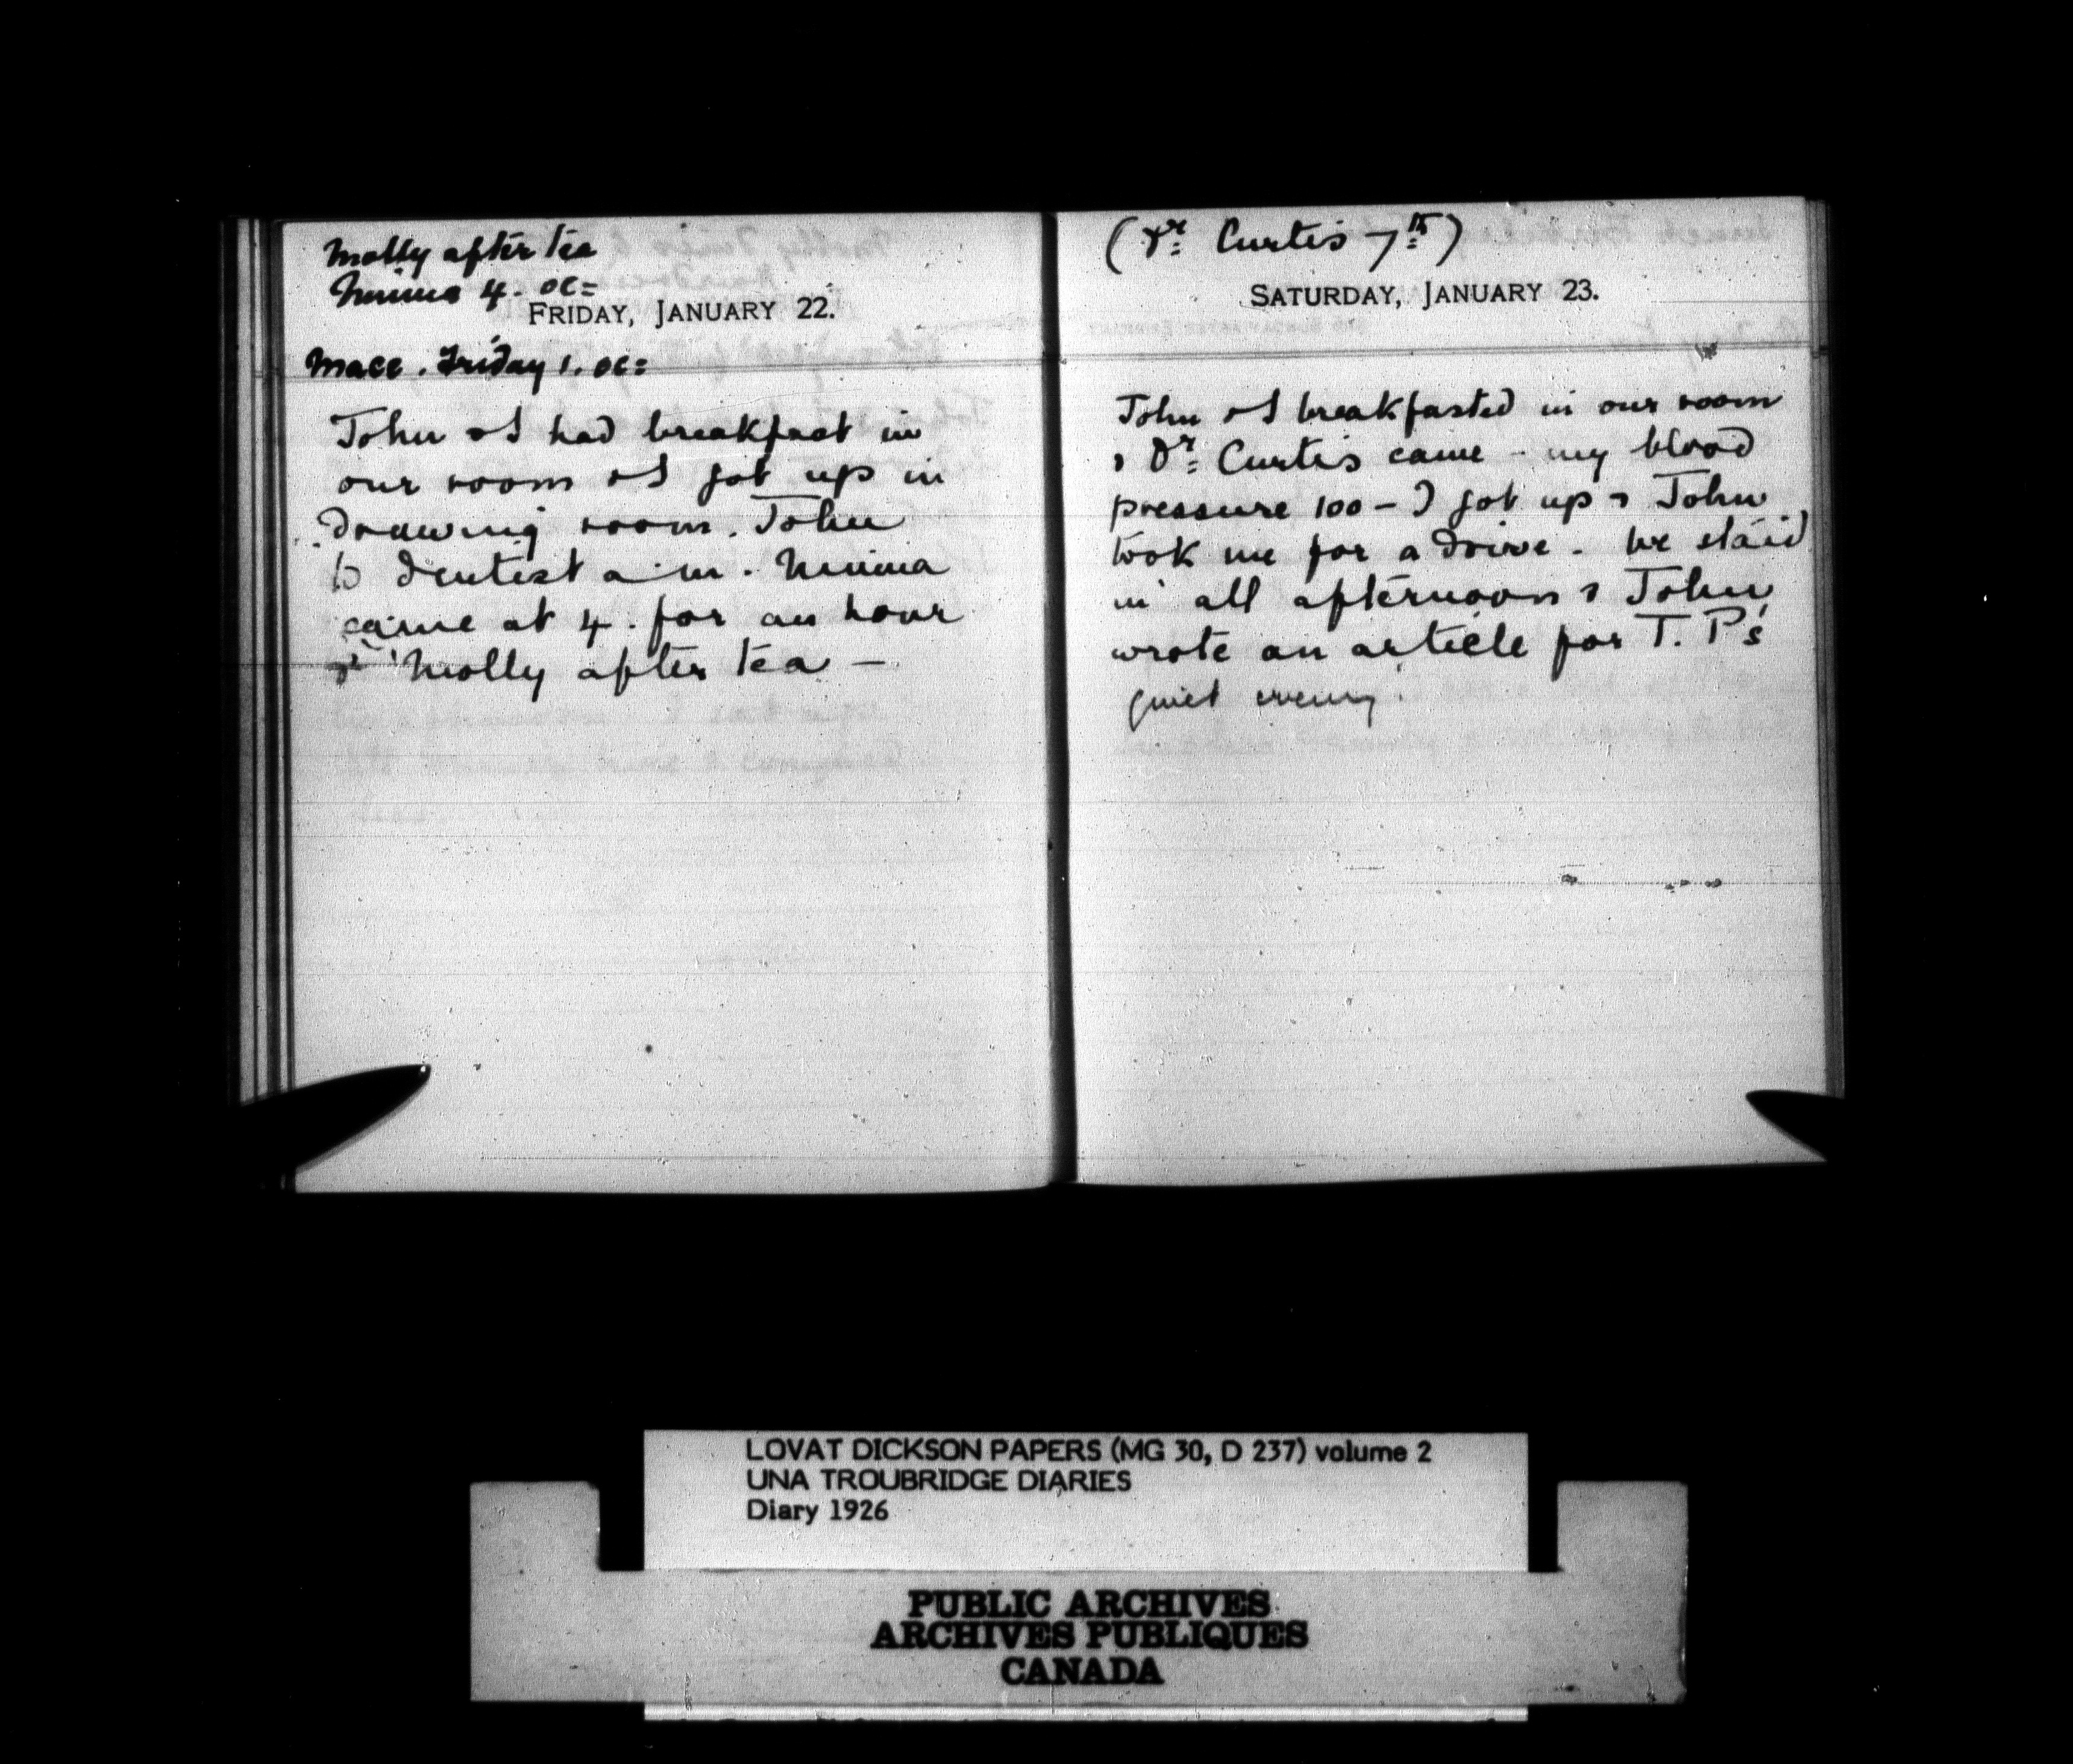 Molly after tea
Minna 4. oc=
FRIDAY, JANUARY 22.
Macc. Friday 1. oc=
John & I had breakfast in
our room & I got up in
drawing room. John
to dentist a.m. Minna
came at 4. for an hour
& Molly after tea –
(Dr= Curtis 7th)
SATURDAY, JANUARY 23.
John & I breakfasted in our room
& Dr= Curtis came - my blood
pressure 100 – I got up & John
took me for a drive - we staid
in all afternoon & John
wrote an article for T. P's
quiet evening.
LOVAT DICKSON PAPERS (MG 30, D 237) volume 2
UNA TROUBRIDGE DIARIES
Diary 1926
PUBLIC ARCHIVES
ARCHIVES PUBLIQUES
CANADA